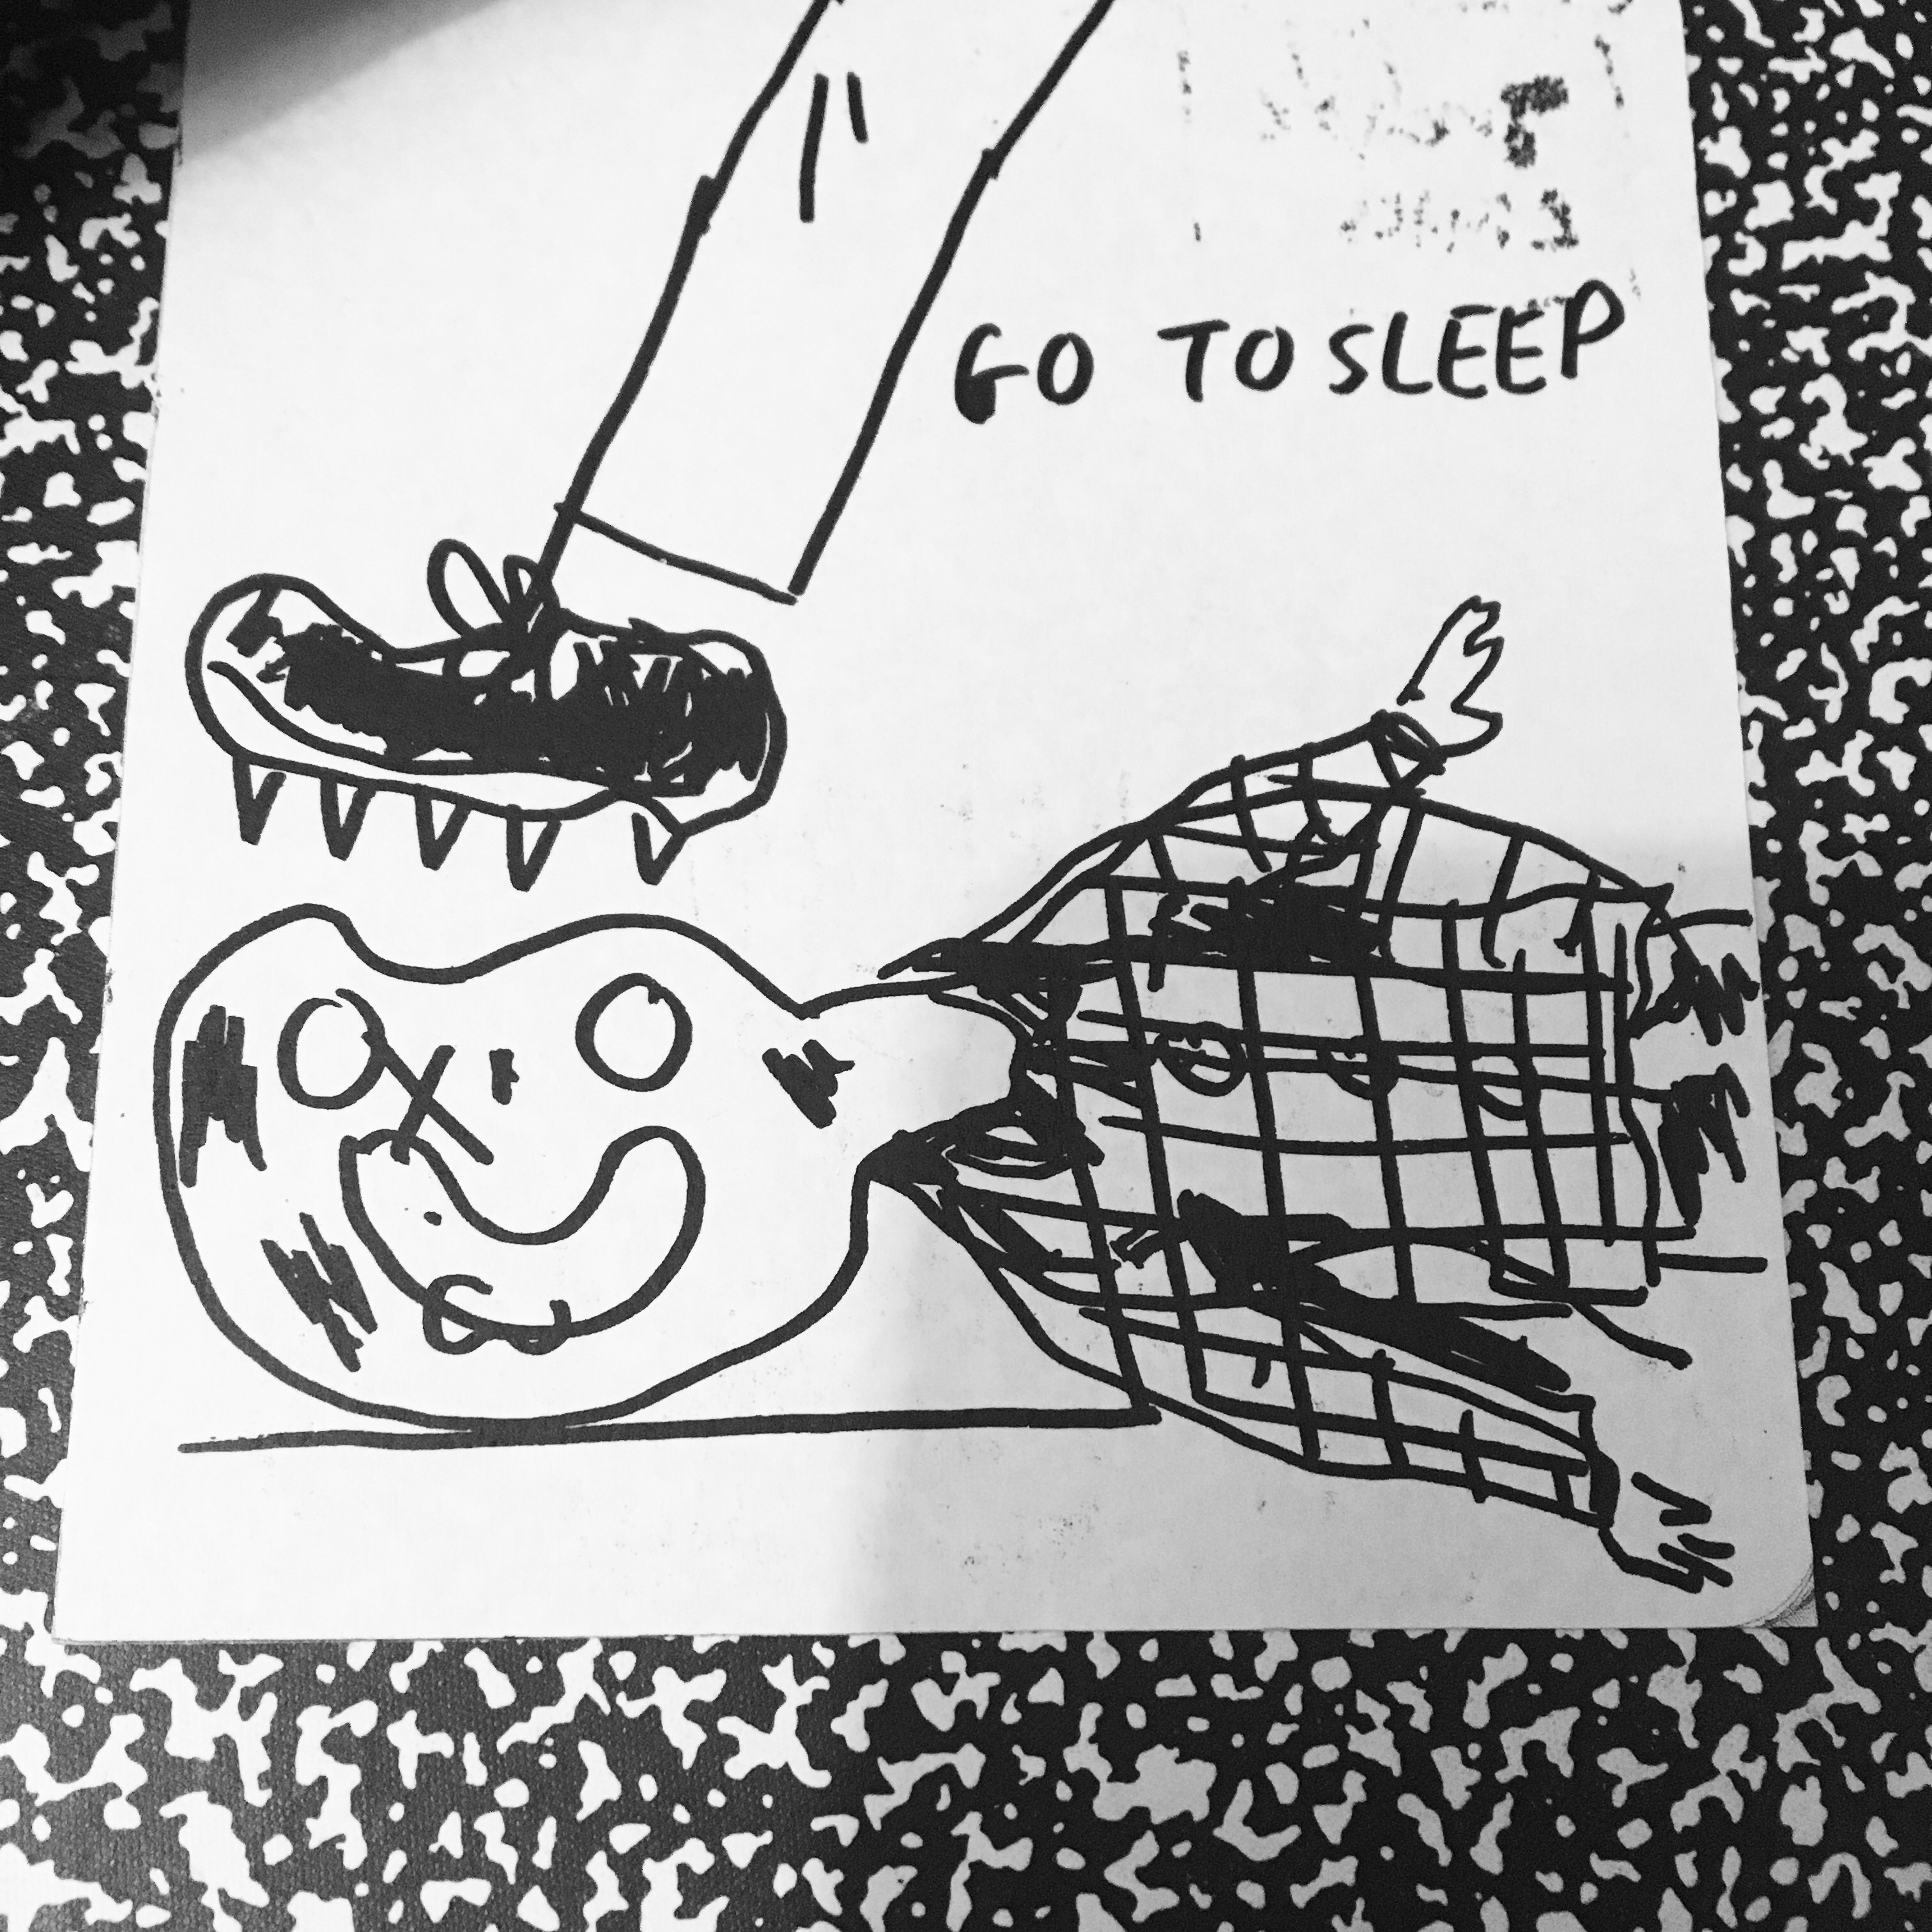 GO TO SLEEP